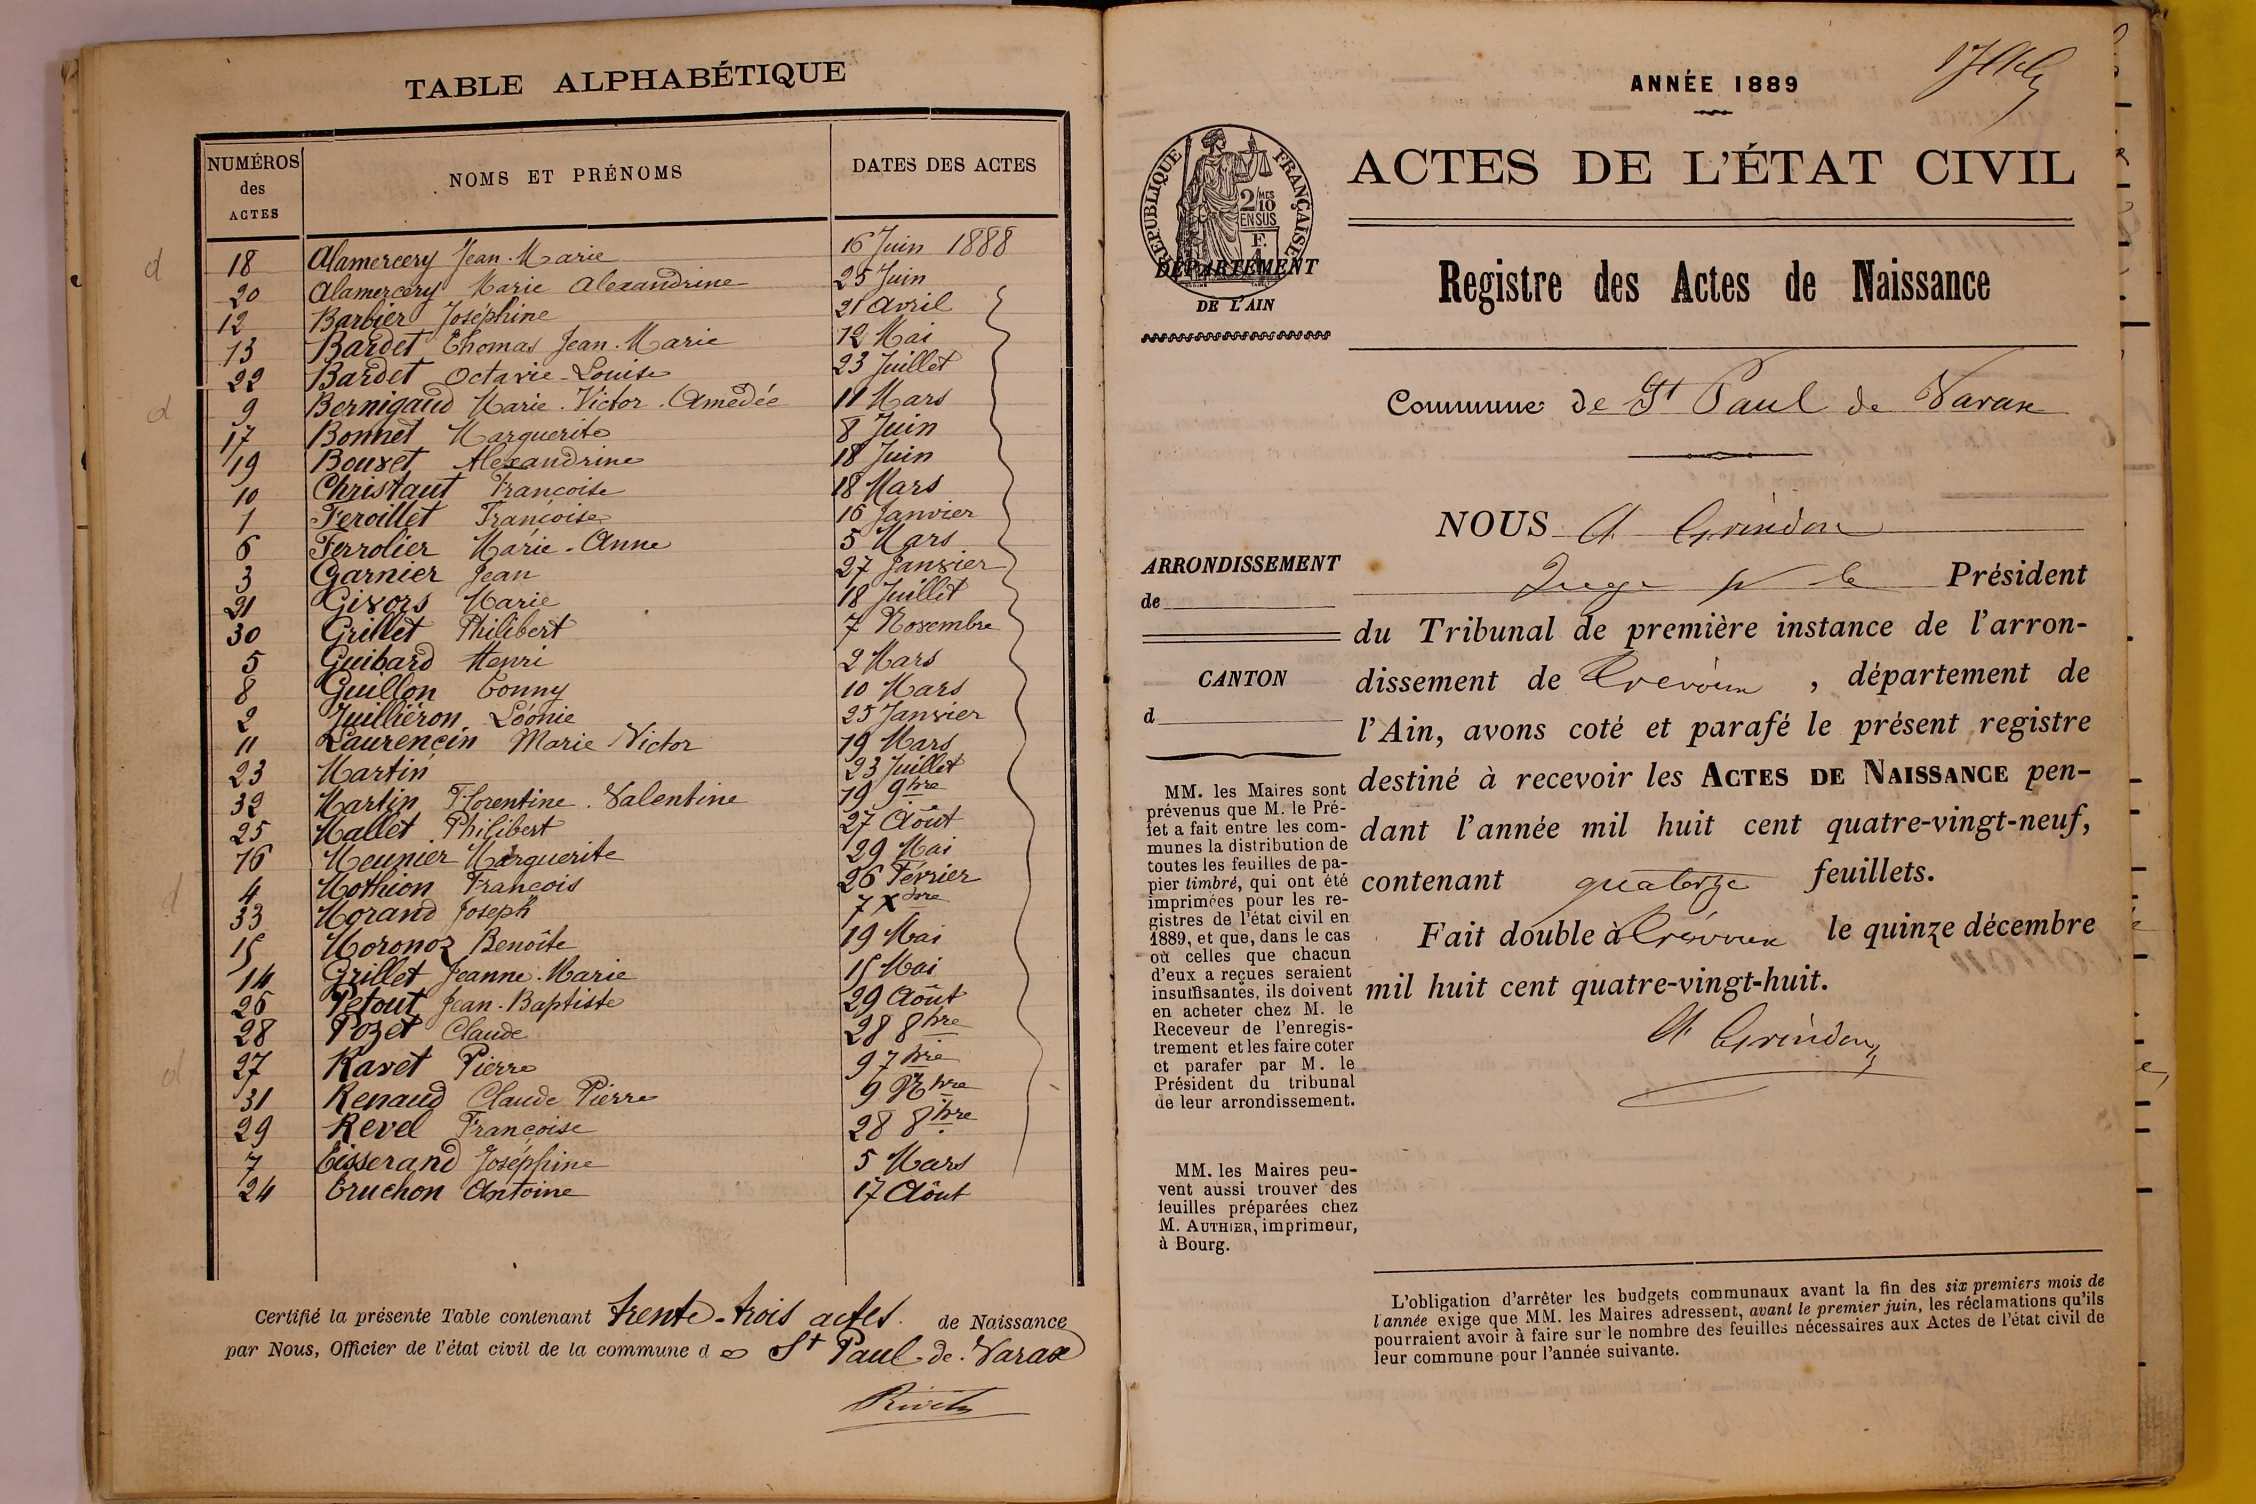 TABLE ALPHABÉTIQUE
NUMÉROS des ACTES NOMS ET PRÉNOMS DATES DES ACTES
18 Alamercery Jean-Marie 16 Juin 1888
20 Alamercery Marie Alexandrine 25 Juin
12 Barbier Joséphine 21 Avril
13 Bardet Thomas Jean-Marie 12 Mai
22 Bardet Octavie-Louise 23 Juillet
9 Bernigaud Marie-Victor-Amédée 11 Mars
17 Bonnet Marguerite 8 Juin
19 Bouvet Alexandrine 18 Juin
10 Christaut Françoise 18 Mars
1 Feroillet Françoise 16 Janvier
6 Ferrolier Marie-Anne 5 Mars
3 Garnier Jean 27 Janvier
21 Givors Marie 18 Juillet
30 Grillet Philibert 7 Novembre
5 Guibard Henri 2 Mars
8 Guillon Tonny 10 Mars
2 Juilliéron Léonie 25 Janvier
11 Laurencin Marie Victor 19 Mars
23 Martin 23 Juillet
32 Martin Florentine Valentine 19 9bre
25 Mallet Philibert 27 Août
16 Meunier Marguerite 29 Mai
4 Mothion François 26 Février
33 Morand Joseph 7 Xbre
15 Moronoz Benoîte 19 Mai
14 Grillet Jeanne-Marie 15 Mai
26 Petout Jean-Baptiste 29 Août
28 Pozet Claude 28 8bre
27 Ravet Pierre 9 7bre
31 Renaud Claude Pierre 9 Nbre
29 Revel Françoise 28 8bre
7 Tisserand Joséphine 5 Mars
24 Truchon Antoine 17 Août
d
d
d
d
Certifié la présente Table contenant trente-trois actes de Naissance
par Nous, Officier de l'état civil de la commune d e St Paul de Varax
ANNÉE 1889
RÉPUBLIQUE FRANÇAISE
2/10 MES
EN SUS
F.
1
DÉPARTEMENT
DE L'AIN
ACTES DE L'ÉTAT CIVIL
Registre des Actes de Naissance
Commune de St Paul de Varax
ARRONDISSEMENT
de
CANTON
d
MM. les Maires sont
prévenus que M. le Pré-
fet a fait entre les com-
munes la distribution de
toutes les feuilles de pa-
pier timbré, qui ont été
imprimées pour les re-
gistres de l'état civil en
1889, et que, dans le cas
où celles que chacun
d'eux a reçues seraient
insuffisantes, ils doivent
en acheter chez M. le
Receveur de l'enregis-
trement et les faire coter
et parafer par M. le
Président du tribunal
de leur arrondissement.
MM. les Maires peu-
vent aussi trouver des
feuilles préparées chez
M. AUTHIER, imprimeur,
à Bourg.
NOUS A Grindon
Juge pr le Président
du Tribunal de première instance de l'arron-
dissement de Trévoux, département de
l'Ain, avons coté et parafé le présent registre
destiné à recevoir les ACTES DE NAISSANCE pen-
dant l'année mil huit cent quatre-vingt-neuf,
contenant quatorze feuillets.
Fait double à Trévoux le quinze décembre
mil huit cent quatre-vingt-huit.
A Grindon
L'obligation d'arrêter les budgets communaux avant la fin des six premiers mois de
l'année exige que MM. les Maires adressent, avant le premier juin, les réclamations qu'ils
pourraient avoir à faire sur le nombre des feuilles nécessaires aux Actes de l'état civil de
leur commune pour l'année suivante.